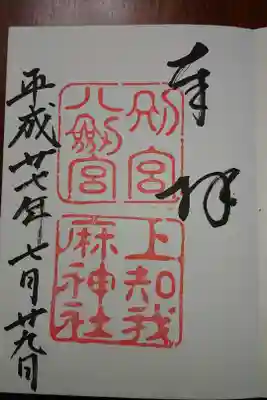 奉拝
別宮
八剣宮
上知我
麻神社
平成廿七年七月廿九日